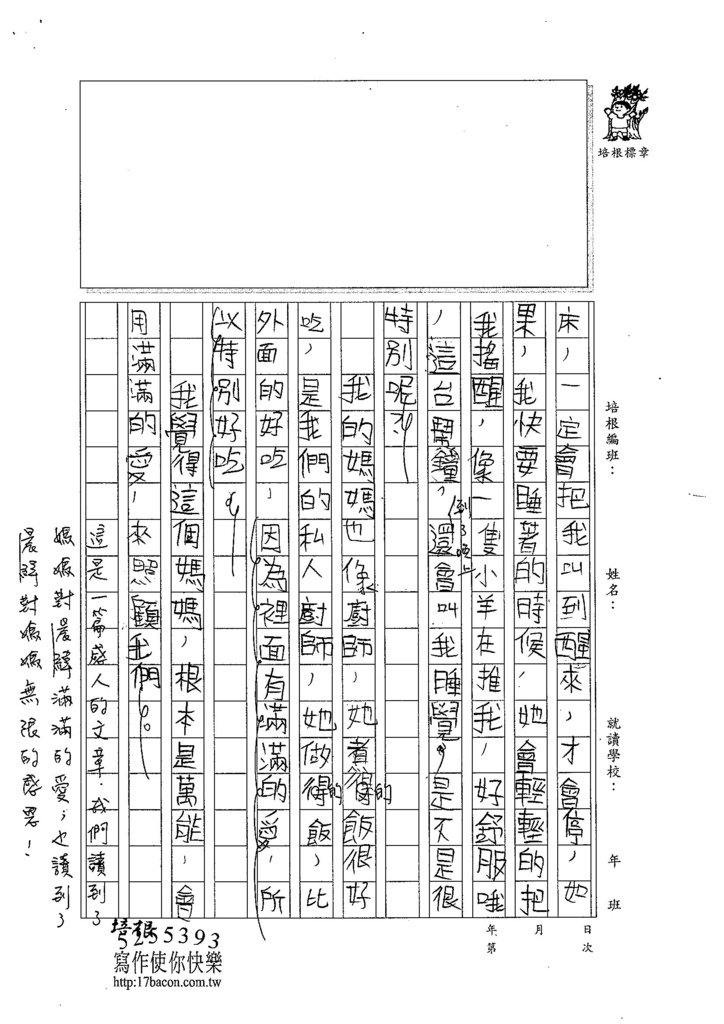 培根標章
培根編班：
姓名：
就讀學校：
年
班
日
次
月
年
第
床，一定會把我叫到醒來，才會停，如
果，我快要睡著的時候，她會輕輕的把
我搖醒，像一隻小羊在推我，好舒服哦
，這台鬧鐘，到了晚上還會叫我睡覺，是不是很
特別呢？
我的媽媽也像廚師，她煮得的飯很好
吃，是我們的私人廚師，她做得的飯，比
外面的好吃，因為裡面有滿滿的愛，所
以特別好吃。
我覺得這個媽媽，根本是萬能，會
用滿滿的愛，來照顧我們。
這是一篇感人的文章．我們讀到了
媽媽對晨鐸滿滿的愛；也讀到了
晨鐸對媽媽無限的感恩！
培根
5255393
寫作使你快樂
http:17bacon.com.tw